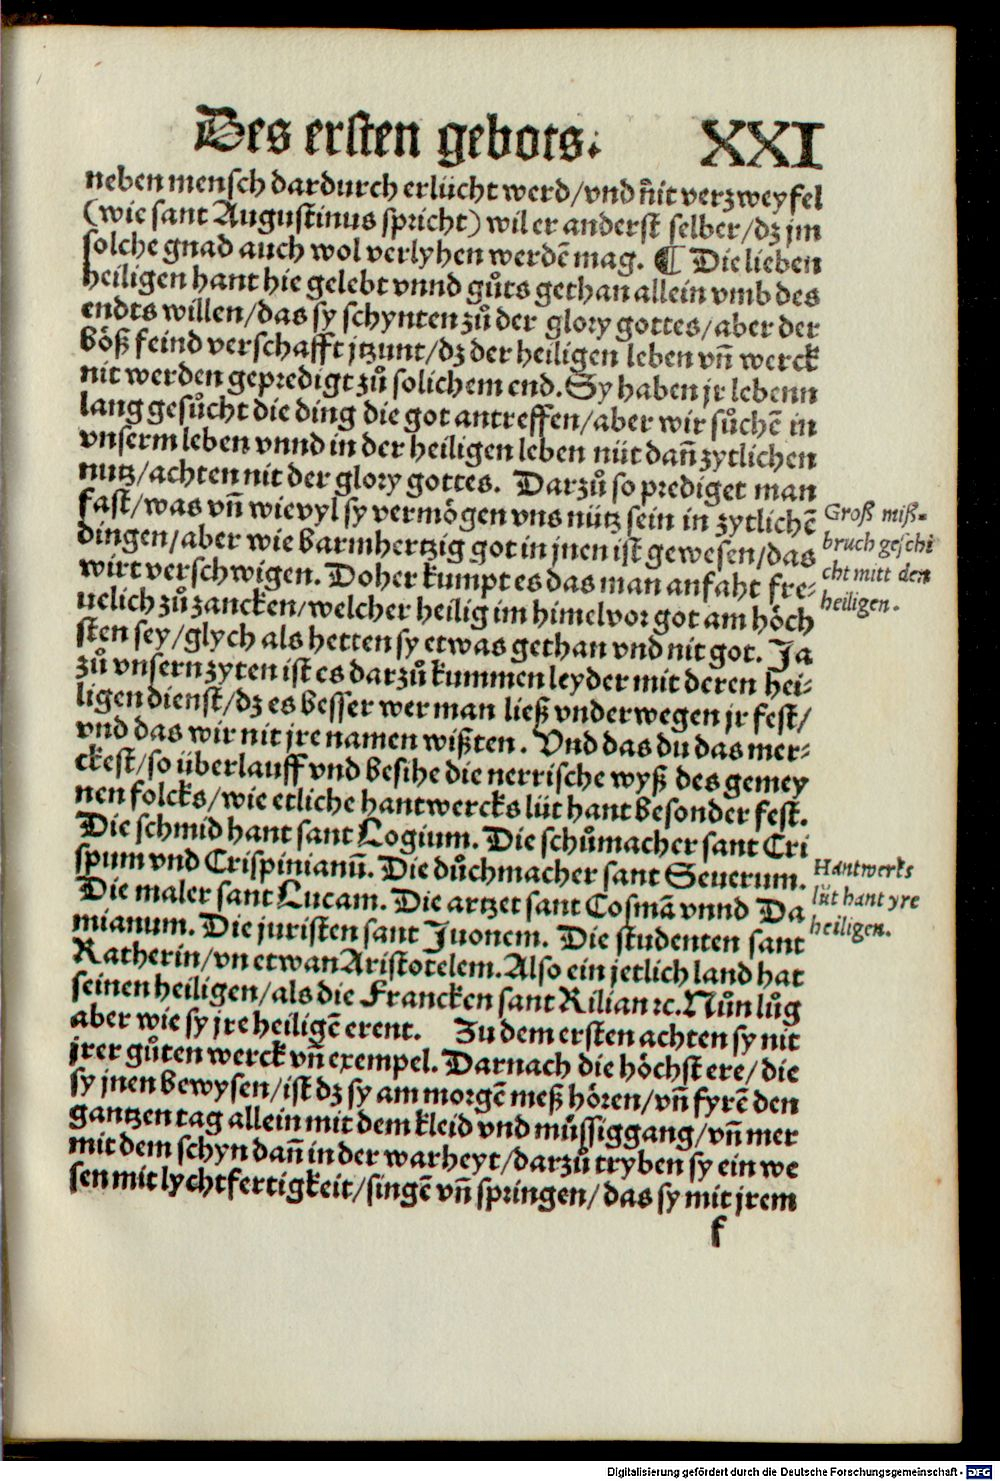 Des ersten gebots. XXI
neben mensch dardurch erlücht werd/vnd nit verzweyfel
(wie sant Augustinus spricht) wil er anderst selber/dz jm
solche gnad auch wol verlyhen werdē mag. ¶ Die lieben
heiligen hant hie gelebt vnnd gůts gethan allein vmb des
endts willen/das sy schynten zů der glory gottes/aber der
böß feind verschafft jtzunt/dz der heiligen leben vñ werck
nit werden gepredigt zů solichem end. Sy haben jr lebenn
lang gesůcht die ding die got antreffen/aber wir sůchē in
vnserm leben vnnd in der heiligen leben nüt dañ zytlichen
nutz/achten nit der glory gottes. Darzů so prediget man
fast/was vñ wievyl sy vermögen vns nütz sein in zytlichē
dingen/aber wie barmhertzig got in jnen ist gewesen/das
wirt verschwigen. Doher kumpt es das man anfaht fre-
uelich zů zancken/welcher heilig im himel vor got am höch
sten sey/glych als hetten sy etwas gethan vnd nit got. Ja
zů vnsern zyten ist es darzů kummen leyder mit deren hei-
ligen dienst/dz es besser wer man ließ vnderwegen jr fest/
vnd das wir nit jre namen wißten. Vnd das du das mer-
ckest/so überlauff vnd besihe die nerrische wyß des gemey
nen folcks/wie etliche hantwercks lüt hant besonder fest.
Die schmid hant sant Logium. Die schůmacher sant Cri
spum vnd Crispinianū. Die důchmacher sant Seuerum.
Die maler sant Lucam. Die artzet sant Cosmā vnnd Da
mianum. Die juristen sant Juonem. Die studenten sant
Katherin/vn etwan Aristotelem. Also ein jetlich land hat
seinen heiligen/als die Francken sant Kilian ꝛc. Nůn lůg
aber wie sy jre heiligē erent. Zu dem ersten achten sy nit
jrer gůten werck vñ exempel. Darnach die höchst ere/die
sy jnen bewysen/ist dz sy am morgē meß hören/vñ fyrē den
gantzen tag allein mit dem kleid vnd můssiggang/vñ mer
mit dem schyn dañ in der warheyt/darzů tryben sy ein we
sen mit lychtfertigkeit/singē vñ springen/das sy mit jrem
f
Groß miß-
bruch geschi
cht mitt den
heiligen.
Hantwerks
lüt hant yre
heiligen.
Digitalisierung gefördert durch die Deutsche Forschungsgemeinschaft - DFG